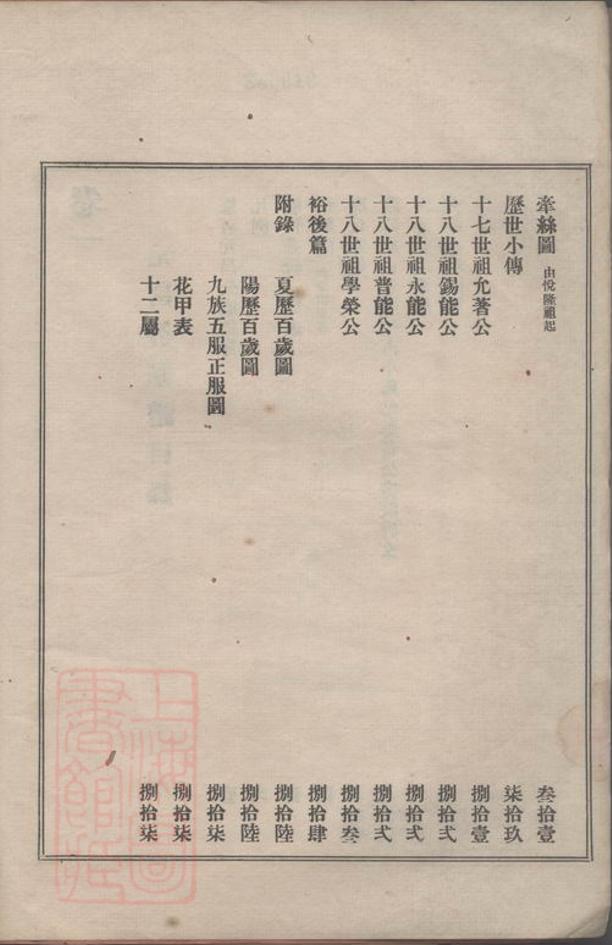 牽絲圖 由悅隆祖起 叁拾壹
歷世小傳 柒拾玖
十七世祖允著公 捌拾壹
十八世祖錫能公 捌拾弍
十八世祖永能公 捌拾弍
十八世祖普能公 捌拾弍
十八世祖學榮公 捌拾叁
裕後篇 捌拾肆
附錄 夏歷百歲圖 捌拾陸
陽歷百歲圖 捌拾陸
九族五服正服圖 捌拾柒
花甲表 捌拾柒
十二屬 捌拾柒
上海圖
書館藏